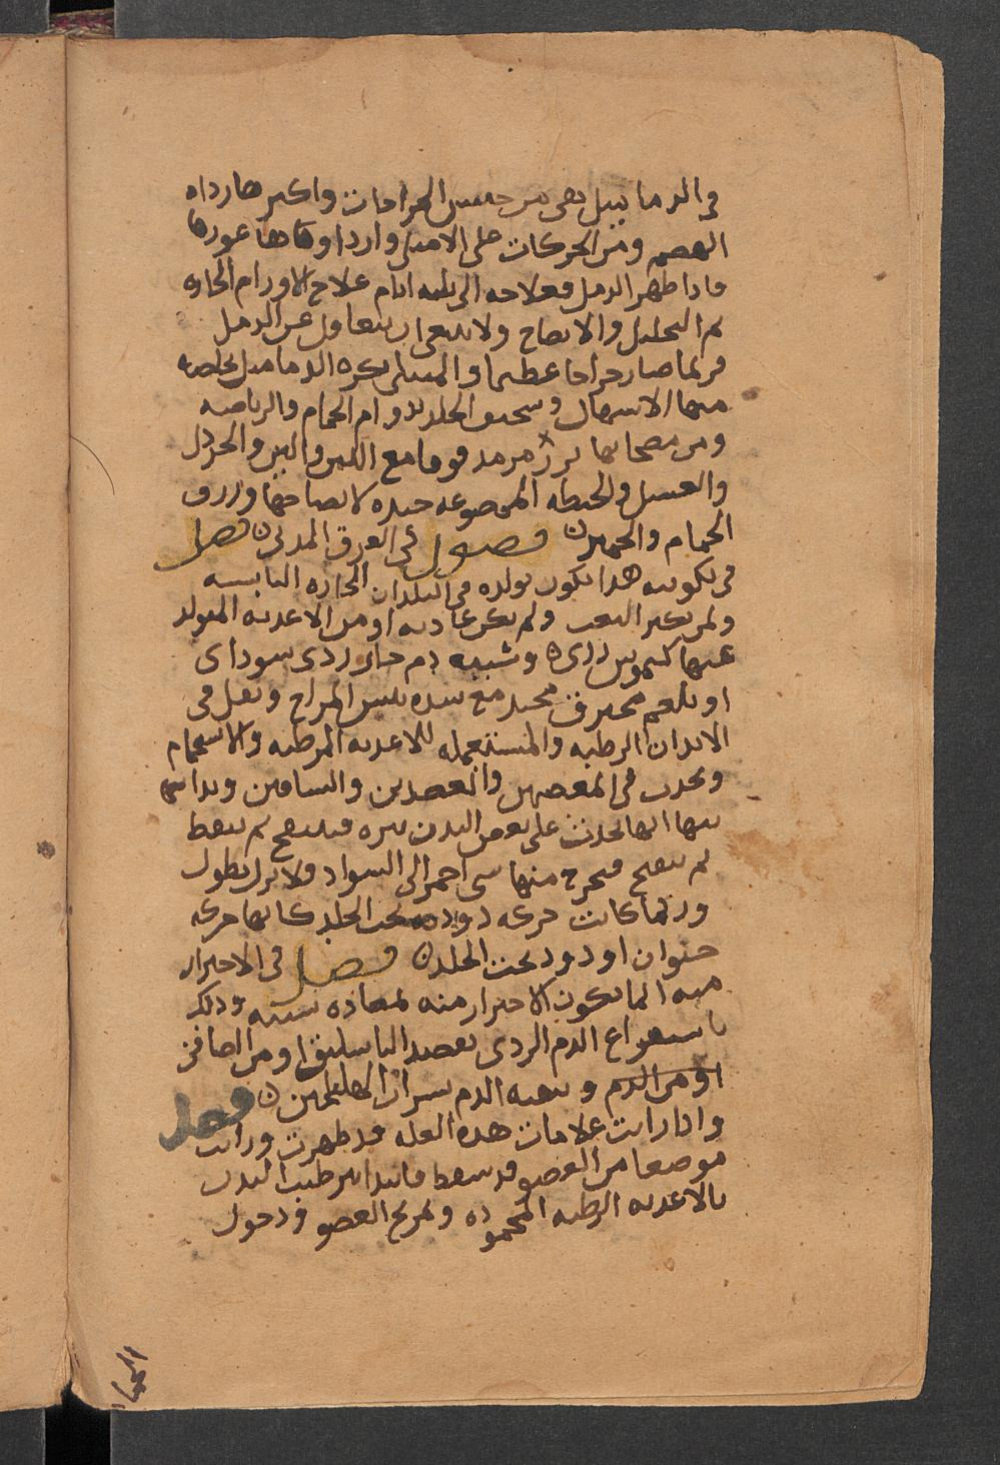 في الدماميل هي من جنس الخراجات واكثرها رداه
الهضم ومن الحركات على الامتلا وارداوها اغورها
فاذا ظهر الدمل فعلاجه الى ثلثه ايام علاج الاورام الحاره
ثم التحليل والانضاج ولا ينبغي ان يتغافل عن الدمل
فربما صار خراجا عظيما والمبتلى بكثره الدماميل يخلصه
منها الاسهال وسخف الجلد بدوام الحمام والرياضه
ومن منضجاتها بزر مرو مدقوقا مع اللبن والتين والخردل
والعسل والحنطه الممضوعه جيده لانضاجها وزرق
الحمام والخمير فصول في العرق المدني فصل
في تكونه هذا يكون تولده في البلدان الحاره اليابسه
ولمن يكثر التعب ولم يكن عادته او من الاغديه المتولد
عنها كيموس ردي وشبيه دم حار ردي سوداي
او بلغم محترق محتد مع شده يبس المزاج ويقل في
الابدان الرطبه والمستعمله للاغديه المرطبه والاستحمام
ويحدث في المعصمين والعضدين والساقين
انها تحدث على بعض البدن بثره فتنتفخ ثم تنفط
ثم تنفتح فيخرج منها شي احمر الى السواد ولا يزل يطول
وربما كانت حركه دوديه تحت الجلد كانها حركه
حيوان او دود تحت الجلد فصل في الاحتراز
منه انما يكون الاحتراز منه لمضاده سببه وذلك
باستفراغ الدم الردي بفصد الباسليق او من الصافن
او من الدم وتنقيه الدم بشراب الهليلجين فصل
واذا رايت علامات هذه العله قد ظهرت ورايت
موضعا من العضو قد تنفط فابتدا بترطيب البدن
بالاغديه الرطبه المحموده وتمريخ العضو ودخول
الحمام